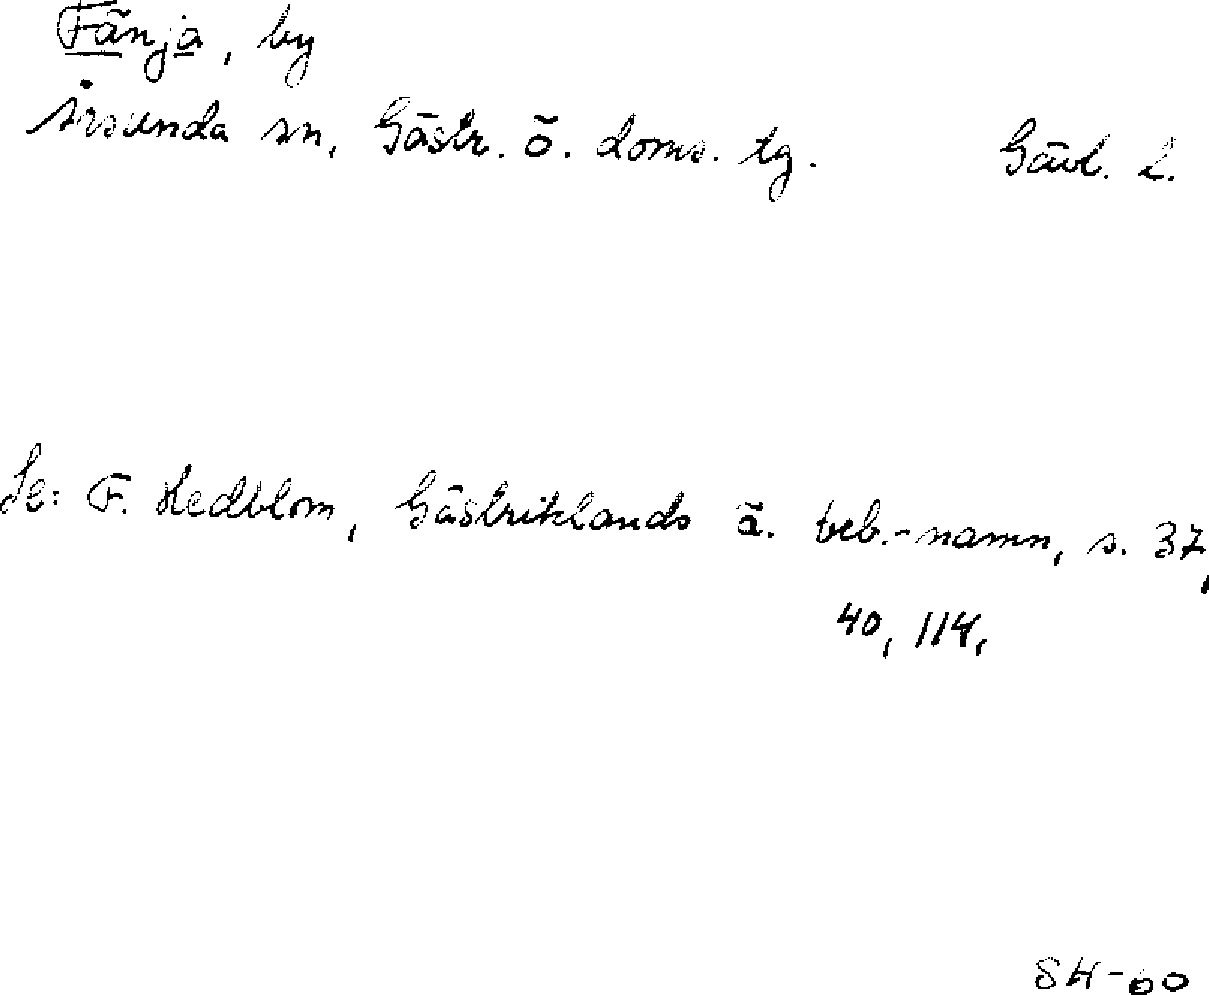 Fänja, by
Årsunda sn, Gästr. ö. doms. tg. Gävl. l.
Se: F. Hedblom, Gästriklands ä. beb.-namn, s. 37,
40, 114,
SH-60